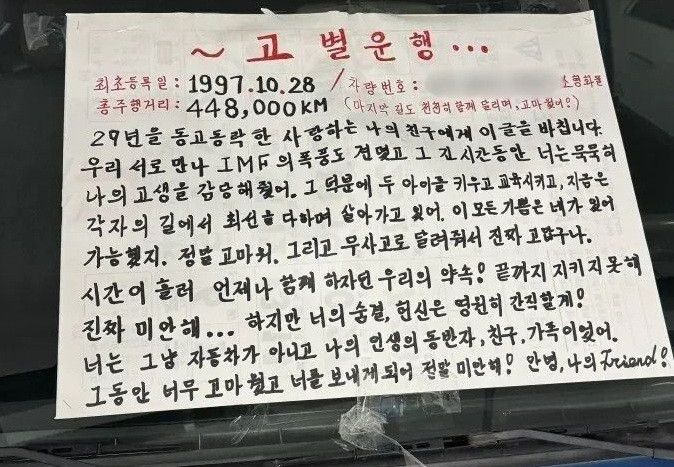 ~ 고별운행...
최초등록일: 1997.10.28 / 차량번호: 소형화물
총주행거리: 448,000KM (마지막 길도 천천히 함께 달리며, 고마웠어!)
29년을 동고동락 한 사랑하는 나의 친구에게 이 글을 바칩니다.
우리 서로 만나 IMF의 폭풍도 견뎠고 그 긴 시간동안 너는 묵묵히
나의 고생을 감당해 줬어. 그 덕분에 두 아이를 키우고 교육시키고, 지금은
각자의 길에서 최선을 다하며 살아가고 있어. 이 모든 기쁨은 네가 있어
가능했지. 정말 고마워. 그리고 무사고로 달려줘서 진짜 고맙구나.
시간이 흘러 언제나 함께 하자던 우리의 약속! 끝까지 지키지 못해
진짜 미안해... 하지만 너의 숨결, 헌신은 영원히 간직할게!
너는 그냥 자동차가 아니고 나의 인생의 동반자, 친구, 가족이었어.
그동안 너무 고마웠고 너를 보내게 되어 정말 미안해! 안녕, 나의 Friend!